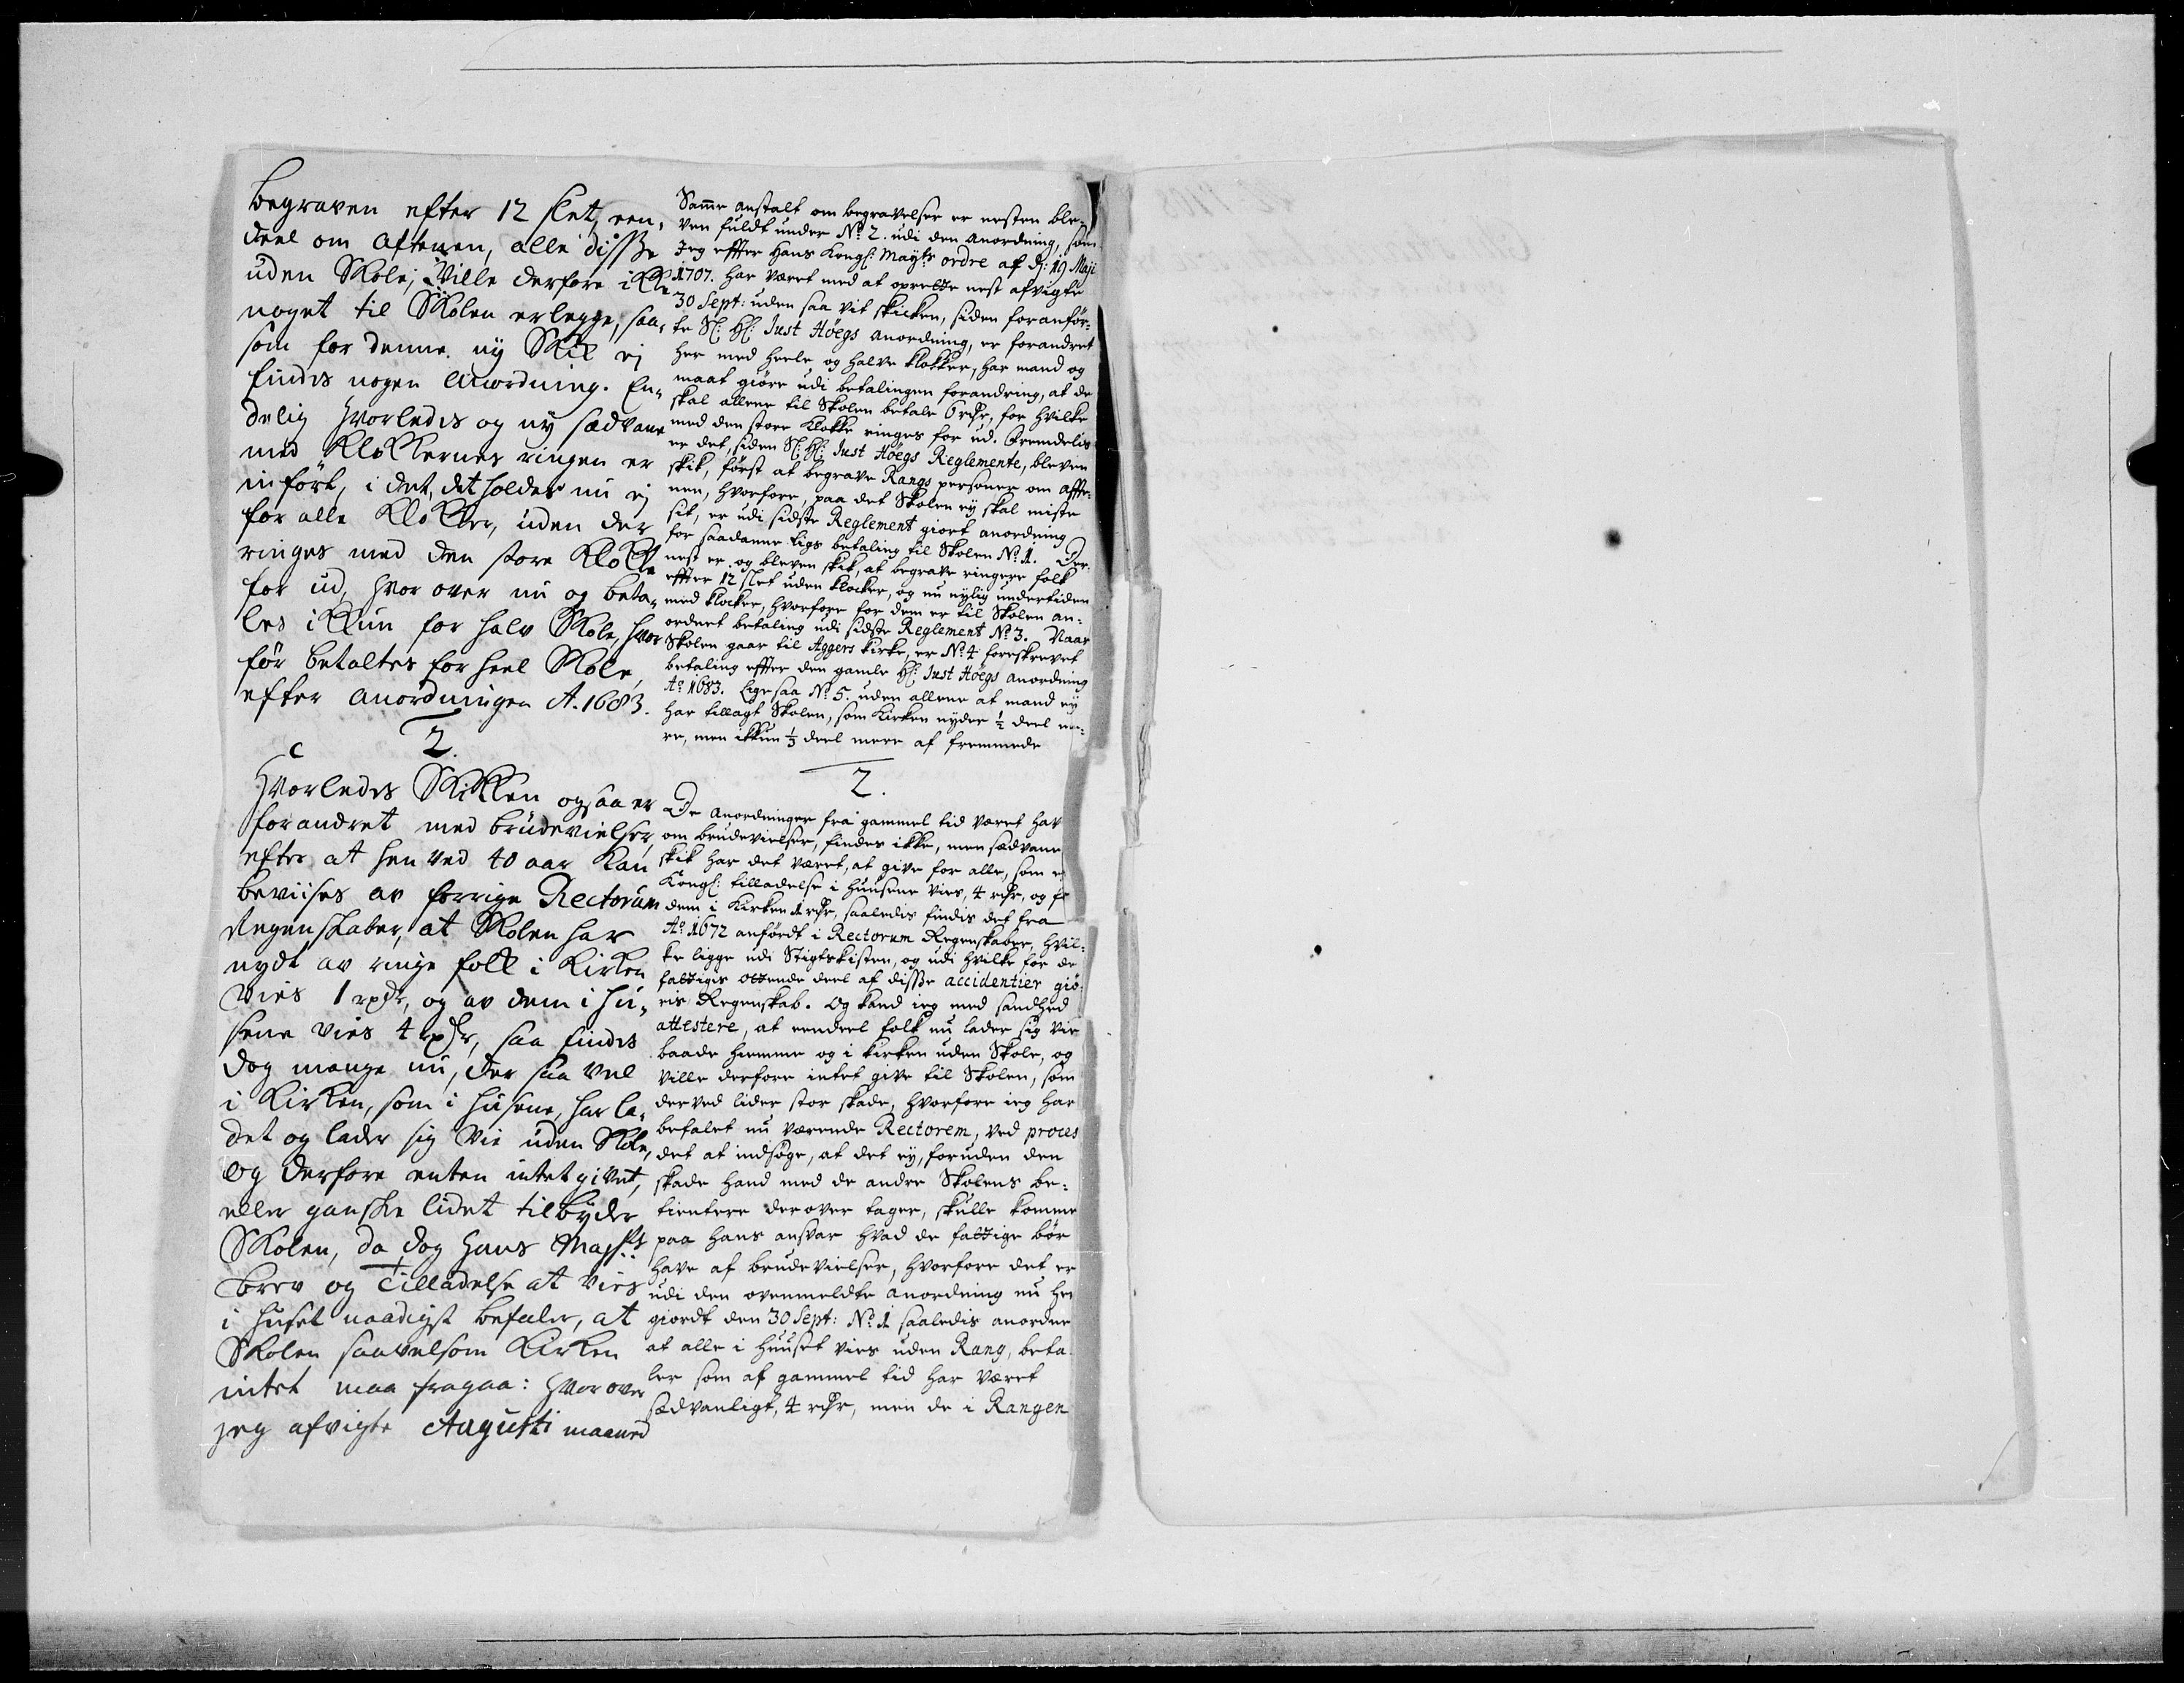 begraven efter 12 slet, een,
deel om Aftenen, alle disse
uden Skole; Ville derfore ikke
noget til Skolen erlegge, saa,
som for denne ny Skik ej
findes nogen Anordning. En,
delig hvorledes og ny sædvane
med Klokkernes ringen er
inført, i det, det holdes nu ej
for alle Klokker, uden der
ringes med den store Klokke
for ud, hvor over nu og beta,
les ikkun for halv Skole, hvor
før betaltes for heel Skole,
efter anordningen A. 1683.
2.
Hvorledes Skikken ogsaa er
forandret med brudevielser,
efter at hen ved 40 aar kan
beviises av forrige Rectorum
Regenskaber, at Skolen har
nydt av ringe folk i Kirken
vies 1 rxdr, og av dem i hu,
sene vies 4 rxdr, saa findes
dog mange nu, der saa vel
i Kirken, som i husene, har la,
det og lader sig vie uden Skole,
og derfore enten intet givet,
eller ganske lidet tilbyder
Skolen, da dog Hans Mayts
brev og Tilladelse at vies
i huset naadigst befaler, at
Skolen saavelsom Kirken
intet maa fragaa: hvorover
jeg afvigte Augusti maaned
Samme anstalt om begravelser er nesten ble-
ven fuldt under No 2. udi den anordning, som
Jeg effter Hans Kongl: Mayts ordre af d: 19 Maji
1707. har været med at oprette nest afvigte
30 Sept: uden saa vit skicken, siden foranfør-
te Sl: Hl: Just Höegs anordning, er forandret
her med heele og halve klokker, har mand og
maat giøre udi betalingen forandring, at de
skal allene til Skolen betale 6 rdr, for hvilke
med den store Klokke ringes for ud. Fremdelis
er det, siden Sl: Hl: Just Höegs Reglemente, bleven
skik, først at begrave Rangs personer om affte-
nen, hvorfore, paa det Skolen ey skal miste
sit, er udi sidste Reglement giort anordning
for saadanne ligs betaling til Skolen No 1. Der-
nest er og bleven skik, at begrave ringere folk
effter 12 slet uden klocker, og nu nylig undertiden
med klocker, hvorfore for dem er til Skolen an-
ordnet betaling udi sidste Reglement No 3. Naar
Skolen gaar til Aggers kirke, er No 4 foreskrevet
betaling effter den gamle Hl: Just Höegs anordning
Ao 1683. Ligesaa No 5. uden allene at mand ey
har tillagt Skolen, som Kirken nyder ½ deel me-
re, men ikkun ⅓ deel mere af fremmede
2.
De anordninger fra gammel tid været hav
om brudevielser, findes ikke, men sædvane
skik har det været, at give for alle, som
Kongl: tilladelse i huusene vies, 4 rdr, og f
dem i Kirken 1 rdr, saaledis findis det fra
Ao 1672 anfördt i Rectorum Regenskaber, hvil-
ke ligge udi Stigtskisten, og udi hvilke for de
fattigis ottende deel af disse accidentier giø-
ris Regenskab. Og kand ieg med sandhed
attestere, at eendeel folk nu lader sig vie
baade hiemme og i kirken uden Skole, og
ville derfore intet give til Skolen, som
derved lider stor skade, hvorfore ieg har
befalet nu værende Rectorem, ved proces
det at indsøge, at det ey, foruden den
skade hand med de andre Skolens be-
tientere derover tager, skulle komme
paa Hans ansvar hvad de fattige bør
have af brudevielser, hvorfore det er
udi den ovenmeldte anordning nu her
giordt den 30 Sept: No 1 saaledis anordne
at alle i huuset vies uden Rang, beta-
ler som af gammel tid har været
sædvanligt, 4 rdr, men de i Rangen